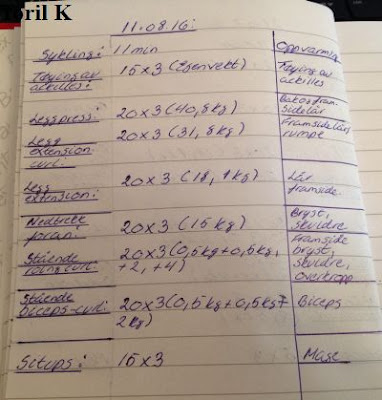 Toril K
11.08.16:
Sykling: 11 min Oppvarming
Tøying av 15x3 (Egenvekt) Tøying av
ackilles: ackilles
Leggpress: 20x3 (40,8kg) Bak og fram-
side lår
Legg 20x3 (31,8kg) Framside lår,
extension rumpe
curl:
Legg 20x3 (18,1kg) Lår
extension: framside.
Nedtrekk 20x3 (15kg) Bryst,
foran: skuldre
Stående 20x3(0,5kg+0,5kg, Framside
curl: +2, +4) bryst,
skuldre,
overkropp
Stående 20x3(0,5kg+0,5kg+ Biceps
biceps-curl: 2kg)
Situps: 15x3 Mage